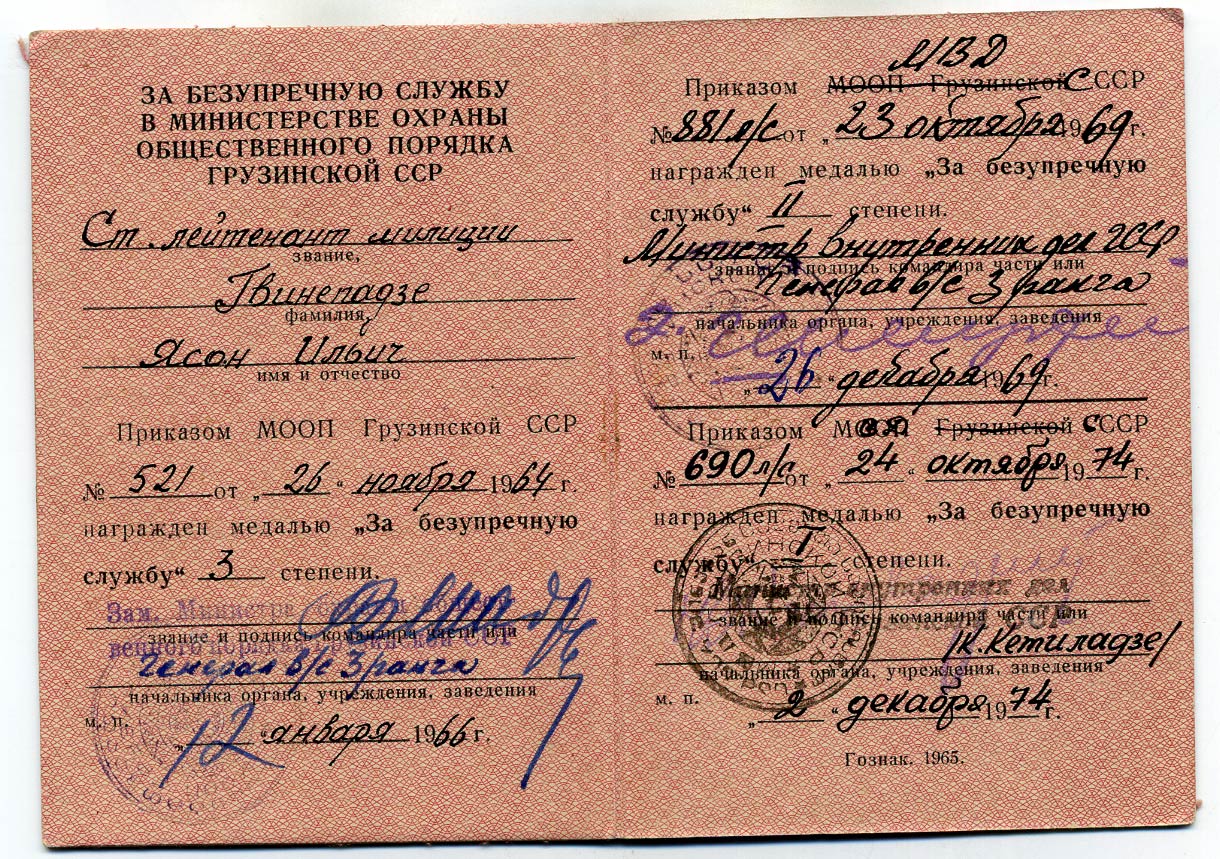 ЗА БЕЗУПРЕЧНУЮ СЛУЖБУ
В МИНИСТЕРСТВЕ ОХРАНЫ
ОБЩЕСТВЕННОГО ПОРЯДКА
ГРУЗИНСКОЙ ССР
Ст. лейтенант милиции
звание,
Гвинепадзе
фамилия,
Ясон Ильич
имя и отчество
Приказом МООП Грузинской ССР
№ 521 от „ 26 “ ноября 1964 г.
награжден медалью „За безупречную
службу“ 3 степени.
Зам. Министра
звание и подпись командира части или
Генерал в/с 3 ранга
начальника органа, учреждения, заведения
м. п.
„12“ января 1966 г.
МВД
Приказом МООП Грузинской СССР
№ 881 л/с от „ 23 октября 1969 г.
награжден медалью „За безупречную
службу“ II степени.
Министр внутренних дел ГССР
звание и подпись командира части или
Генерал в/с 3 ранга
начальника органа, учреждения, заведения
м. п.
„26“ декабря 1969 г.
Приказом Грузинской СССР
№ 690 л/с от „ 24 “ октября 1974 г.
награжден медалью „За безупречную
службу“ I степени.
Министр внутренних дел
звание и подпись командира части или
/К. Кетиладзе/
начальника органа, учреждения, заведения
м. п.
„ 2 “ декабря 1974 г.
Гознак. 1965.